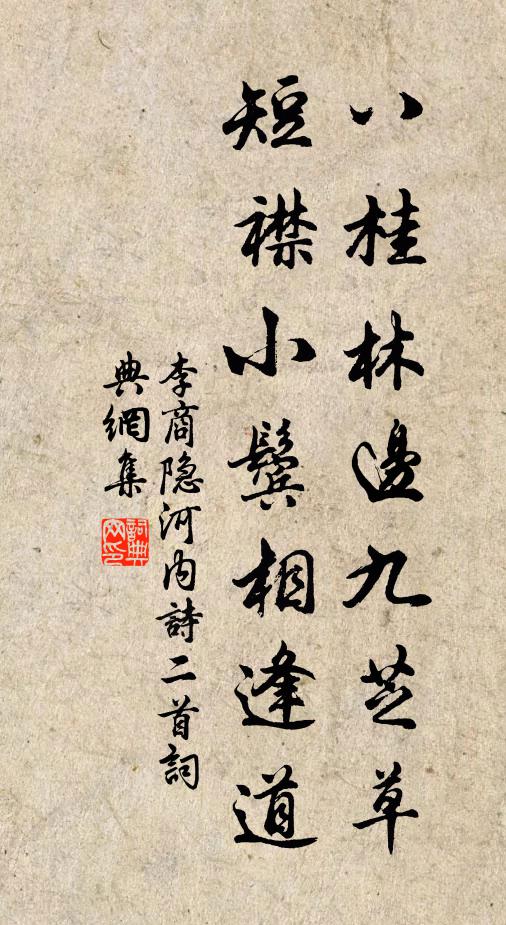 八桂林邊九芝草
短襟小鬢相逢道
李商隐河内詩二首詞
典網集
詞典
网印